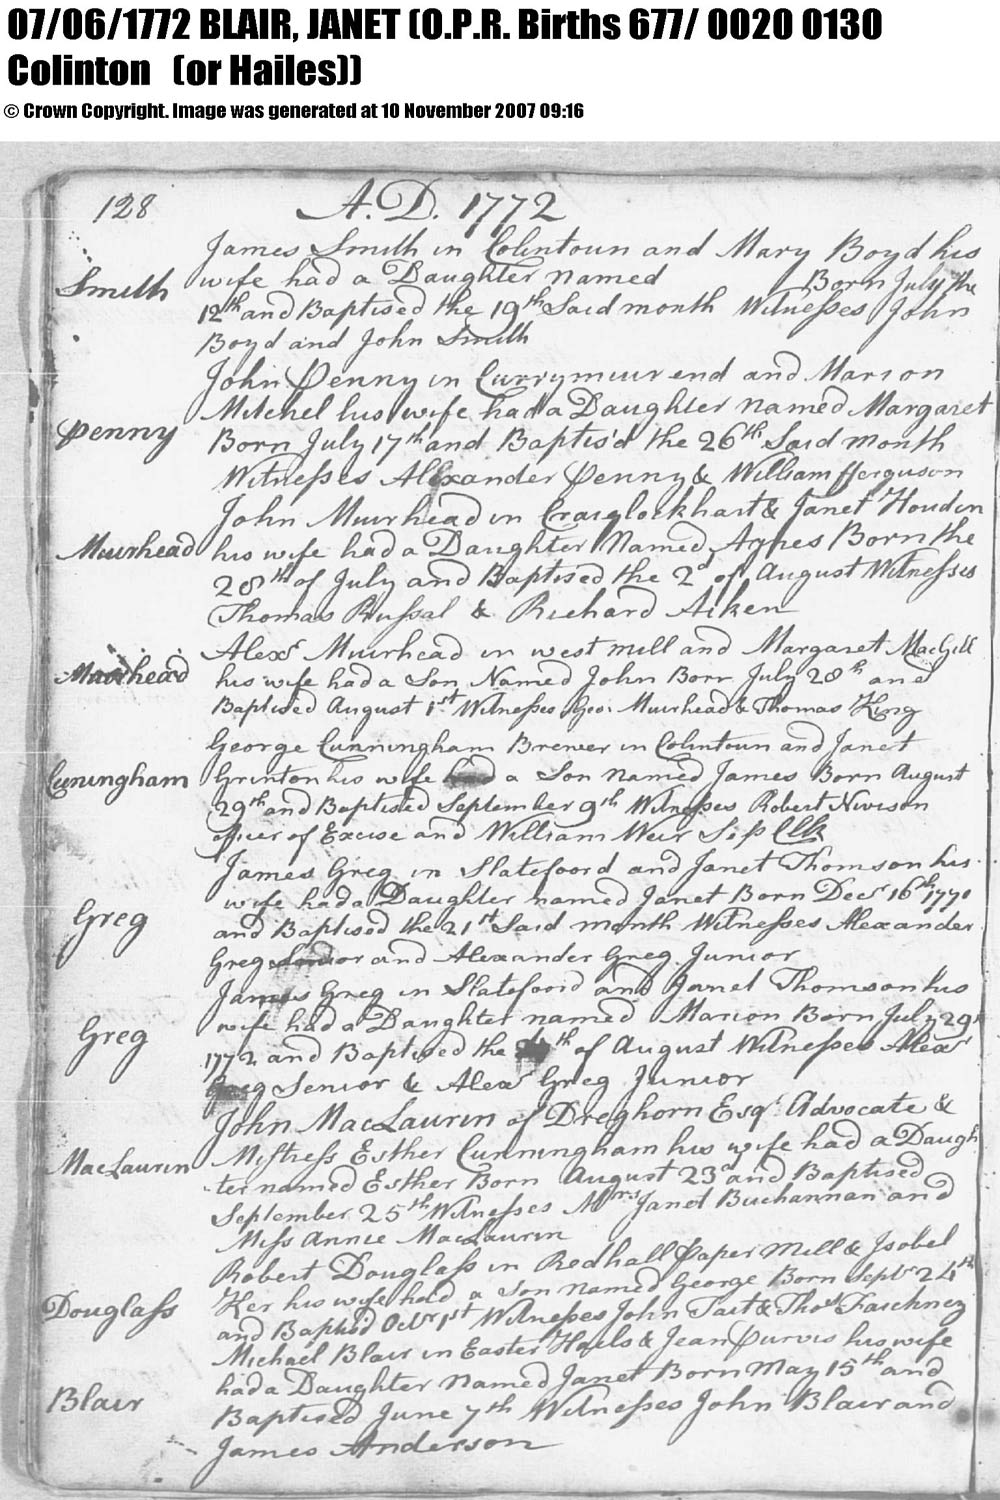 07/06/1772 BLAIR, JANET (O.P.R. Births 677/ 0020 0130
Colinton (or Hailes))
© Crown Copyright. Image was generated at 10 November 2007 09:16
128 A.D. 1772
James Smith in Colintoun and Mary Boyd his
Smith wife had a Daughter named Born July the
12th and Baptised the 19th Said month Witnesses John
Boyd and John Smith
John Penny in Currymuirend and Marion
Mitchel his wife had a Daughter named Margaret
Penny Born July 17th and Baptis'd the 26th Said month
Witnesses Alexander Penny & William fferguson
John Muirhead in Craiglockhart & Janet Houdin
Muirhead his wife had a Daughter Named Agnes Born the
28th of July and Baptised the 2d of August Witnesses
Thomas Russal & Richard Aiken
Alexr Muirhead in west mill and Margaret MacGill
Muirhead his wife had a Son Named John Born July 28th and
Baptised August 1st Witnesses Geo: Muirhead & Thomas King
George Cunningham Brewer in Colintoun and Janet
Cuningham Grinton his wife had a Son named James Born August
29th and Baptised September 9th Witnesses Robert Nivison
officer of Excise and William Weir Sess Clk
James Greg in Slatefoord and Janet Thomson his
wife had a Daughter named Janet Born Decr 16th 1770
Greg and Baptised the 21st Said month Witnesses Alexander
Greg Senior and Alexander Greg Junior
James Greg in Slatefoord and Janet Thomson his
wife had a Daughter named Marion Born July 29th
Greg 1772 and Baptised the th of August Witnesses Alexr
Greg Senior & Alexr Greg Junior
John MacLaurin of Dreghorn Esqr. Advocate &
MacLaurin Mistress Esther Cunningham his wife had a Daugh
ter named Esther Born August 23d and Baptised
September 25th Witnesses Mrs Janet Buchannan and
Miss Annie MacLaurin
Robert Douglass in Redhall Paper mill & Isobel
Douglass Ker his wife had a Son named George Born Septr 24th
and Baptis'd Octbr 1st Witnesses John Tait & Thos Faichney
Michael Blair in Easter Hails & Jean Purvis his wife
had a Daughter Named Janet Born May 15th and
Blair Baptised June 7th Witnesses John Blair and
James Anderson